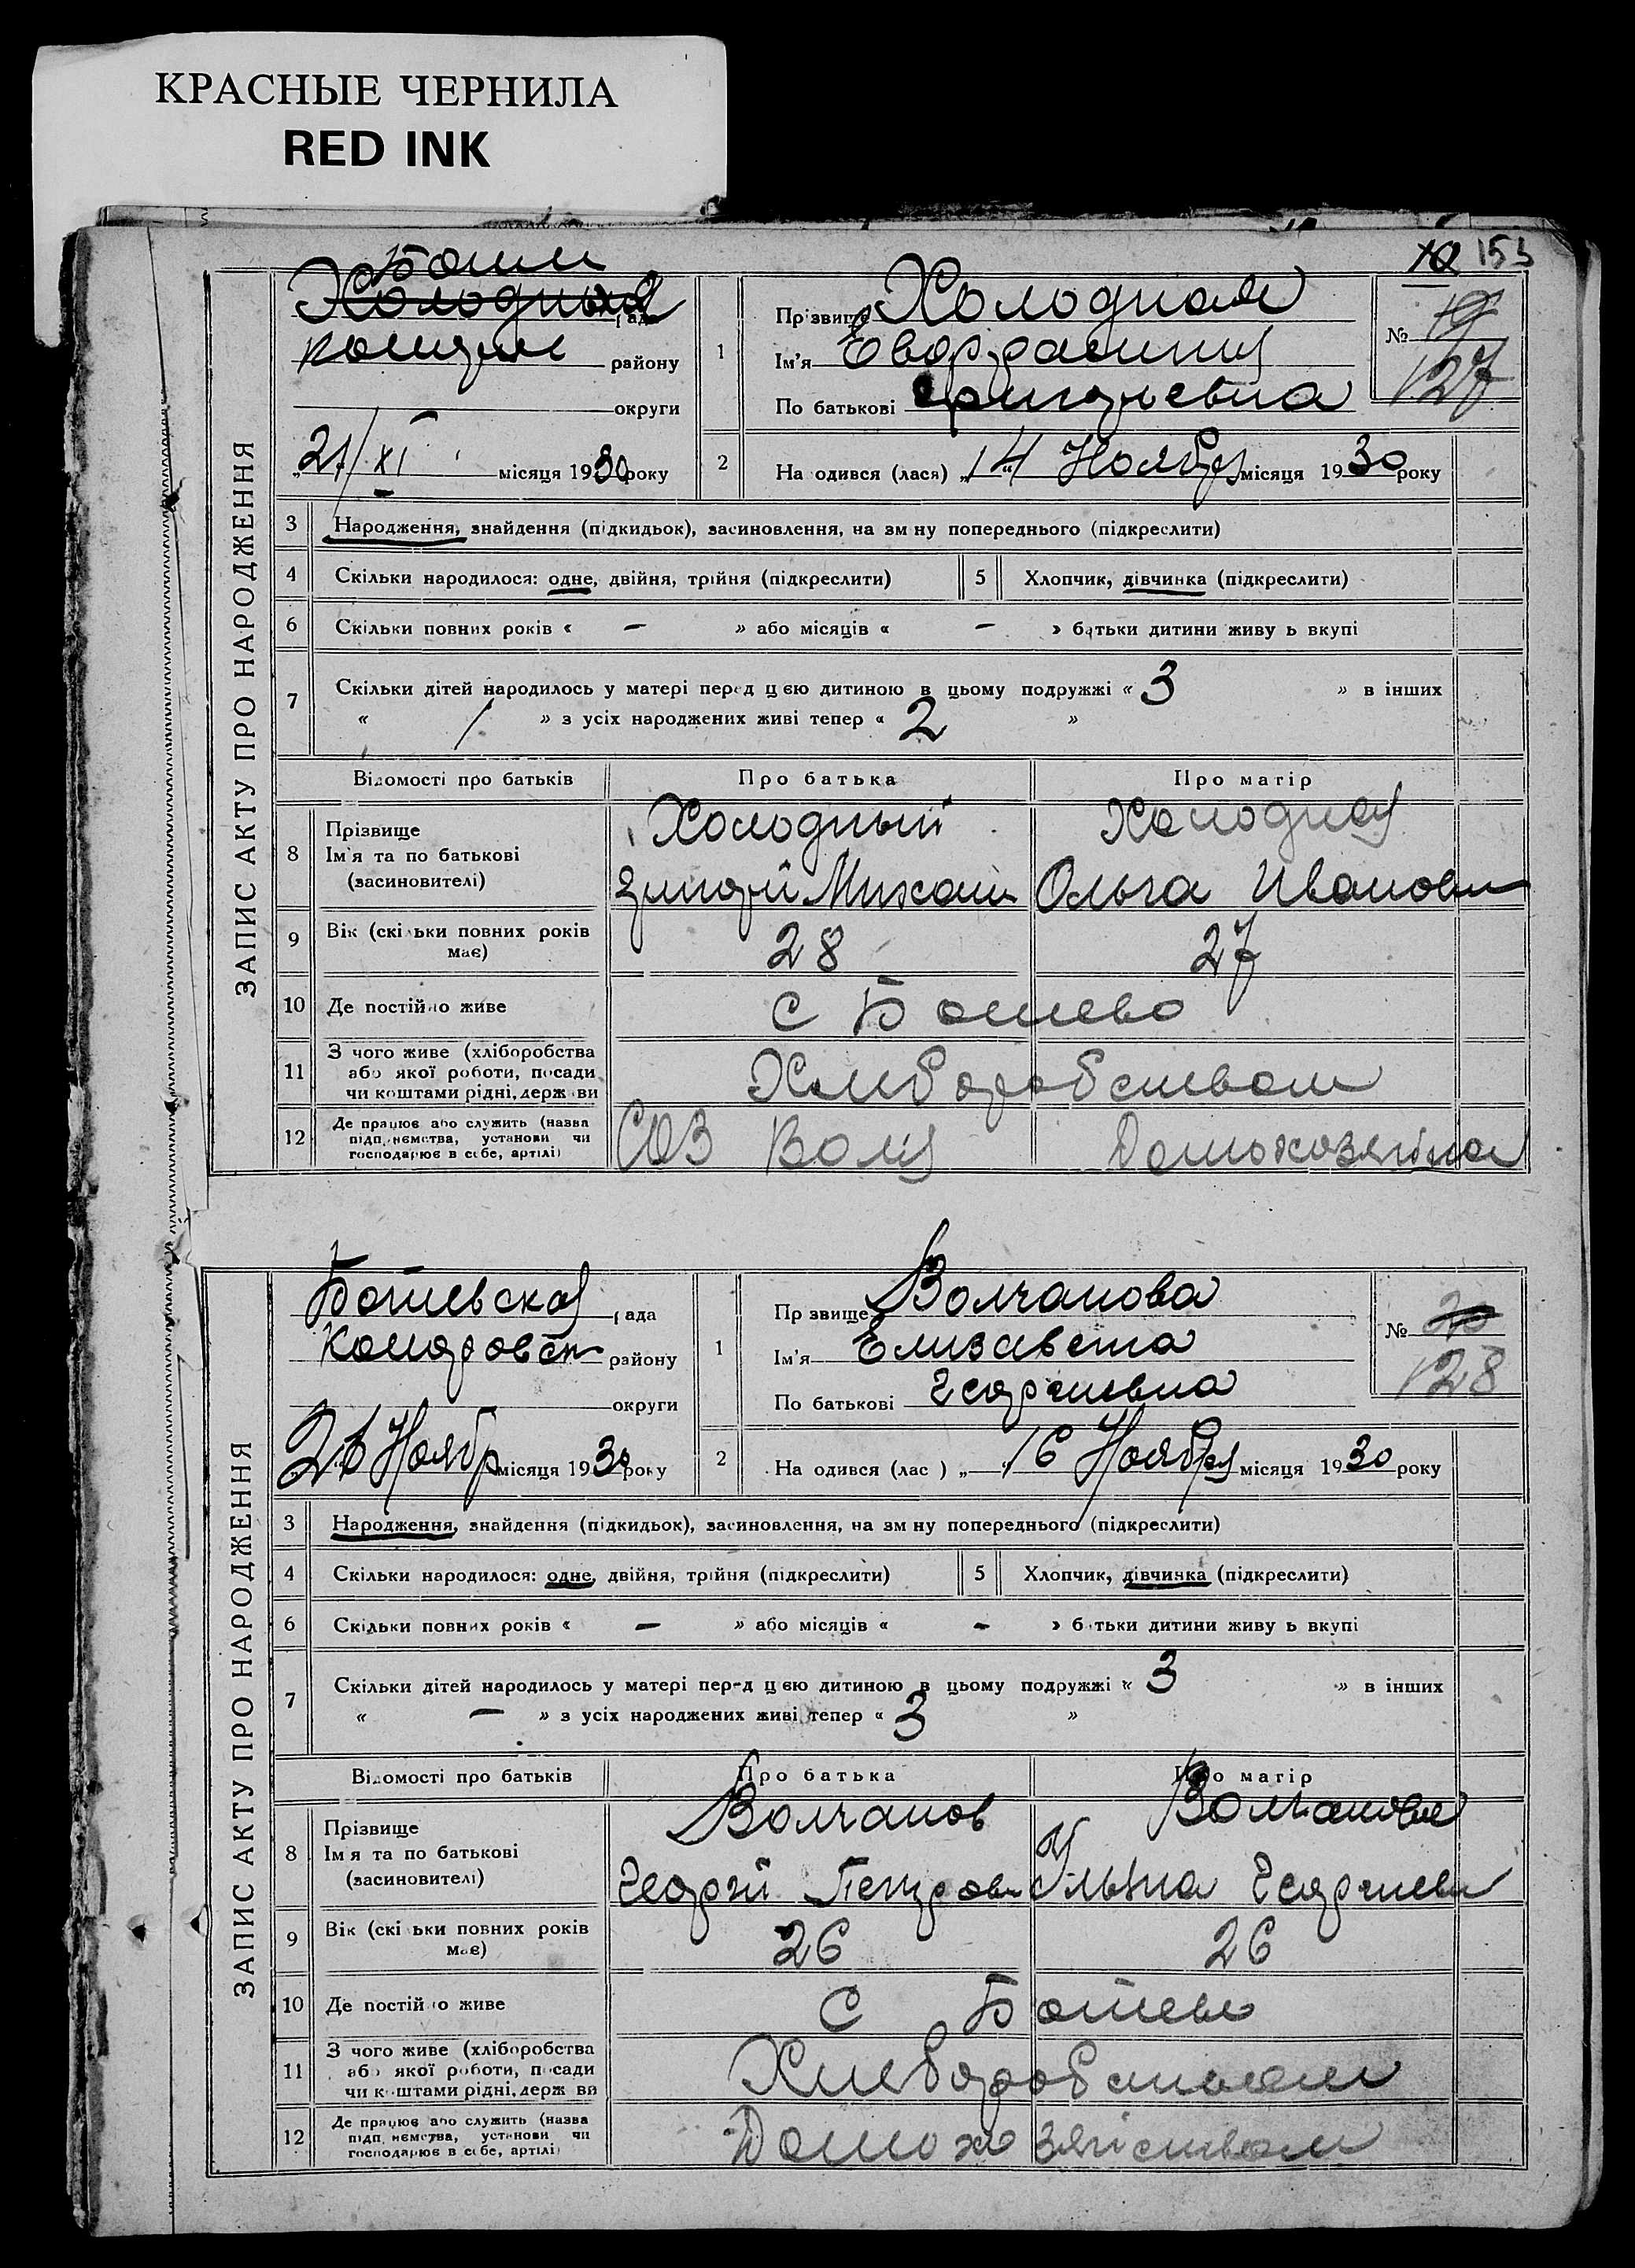 КРАСНЫЕ ЧЕРНИЛА
RED INK
153
ЗАПИС АКТУ ПРО НАРОДЖЕННЯ
Холодная рада
району
округи
„21/XI місяця 1930 року
1
Прізвище Холодная
Ім'я
По батькові Григорьевна
№ 19
127
2
На одився (лася) „14 Ноября місяця 1930 року
3
Народження, знайдення (підкидьок), засиновлення, на зм ну попереднього (підкреслити)
4
Скільки народилося: одне, двійня, трійня (підкреслити)
5
Хлопчик, дівчинка (підкреслити)
6
Скільки повних років « — » або місяців « — » батьки дитини живу ь вкупі
7
Скільки дітей народилось у матері перед цією дитиною в цьому подружжі « 3 » в інших
« / » з усіх народжених живі тепер « 2 »
Відомості про батьків
Про батька
Про матір
8
Прізвище
Ім'я та по батькові
(засиновителі)
Холодный
Григорий Михаил
Холодная
Ольга Ивановн
9
Вік (скі ьки повних років
має)
28
27
10
Де постійно живе
С Ботево
11
З чого живе (хліборобства
або якої роботи, посади
чи коштами рідні, держави
Хлеборобством
12
Де працює або служить (назва
підприємства, установи чи
господарює в себе, артілі)
СОЗ Воля
Домохозяйка
ЗАПИС АКТУ ПРО НАРОДЖЕННЯ
Ботевская рада
району
округи
26 Ноябр місяця 1930 року
1
Пр звище Волчанова
Ім'я Елизавета
По батькові Георгиевна
№ 20
128
2
На одився (лас ) „16 Ноября місяця 1930 року
3
Народження, знайдення (підкидьок), засиновлення, на зм ну попереднього (підкреслити)
4
Скільки народилося: одне, двійня, трійня (підкреслити)
5
Хлопчик, дівчинка (підкреслити)
6
Скільки повних років « — » або місяців « — » б тьки дитини живу ь вкупі
7
Скільки дітей народилось у матері перед цією дитиною в цьому подружжі « 3 » в інших
« — » з усіх народжених живі тепер « 3 »
Відомості про батьків
Про батька
Про матір
8
Прізвище
Ім'я та по батькові
(засиновителі)
Волчанов
Георгий Петрови
Волчанова
Георгиевн
9
Вік (скі ьки повних років
має)
26
26
10
Де постійно живе
С Ботево
11
З чого живе (хліборобства
або якої роботи, посади
чи коштами рідні, держ ви
Хлеборобством
12
Де працює або служить (назва
підприємства, установи чи
господарює в себе, артілі)
Домохозяйством